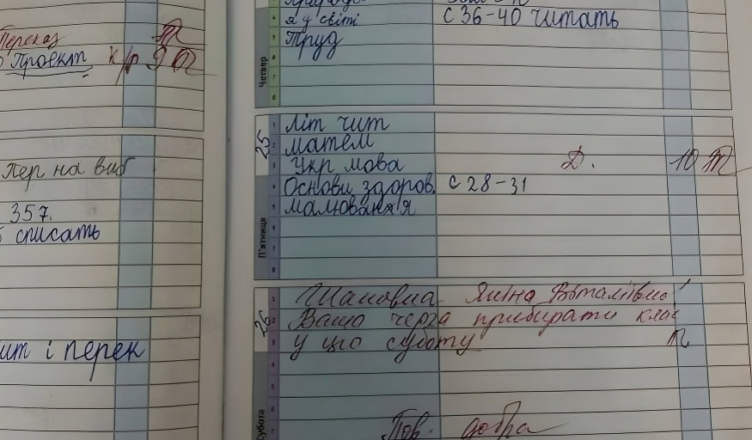 Переказ
Проект к/р 9
пер на виб
357.
списать
ит і перек
Четвер
я у світі с 36-40 читать
Труд
25
П'ятниця
Літ чит
матем
Укр мова Д. 10
Основи здоров. с 28-31
малювання
26
Субота
Шановна Яніна Віталіївно!
Ваша черга прибирати клас
у цю суботу
Пов. добра